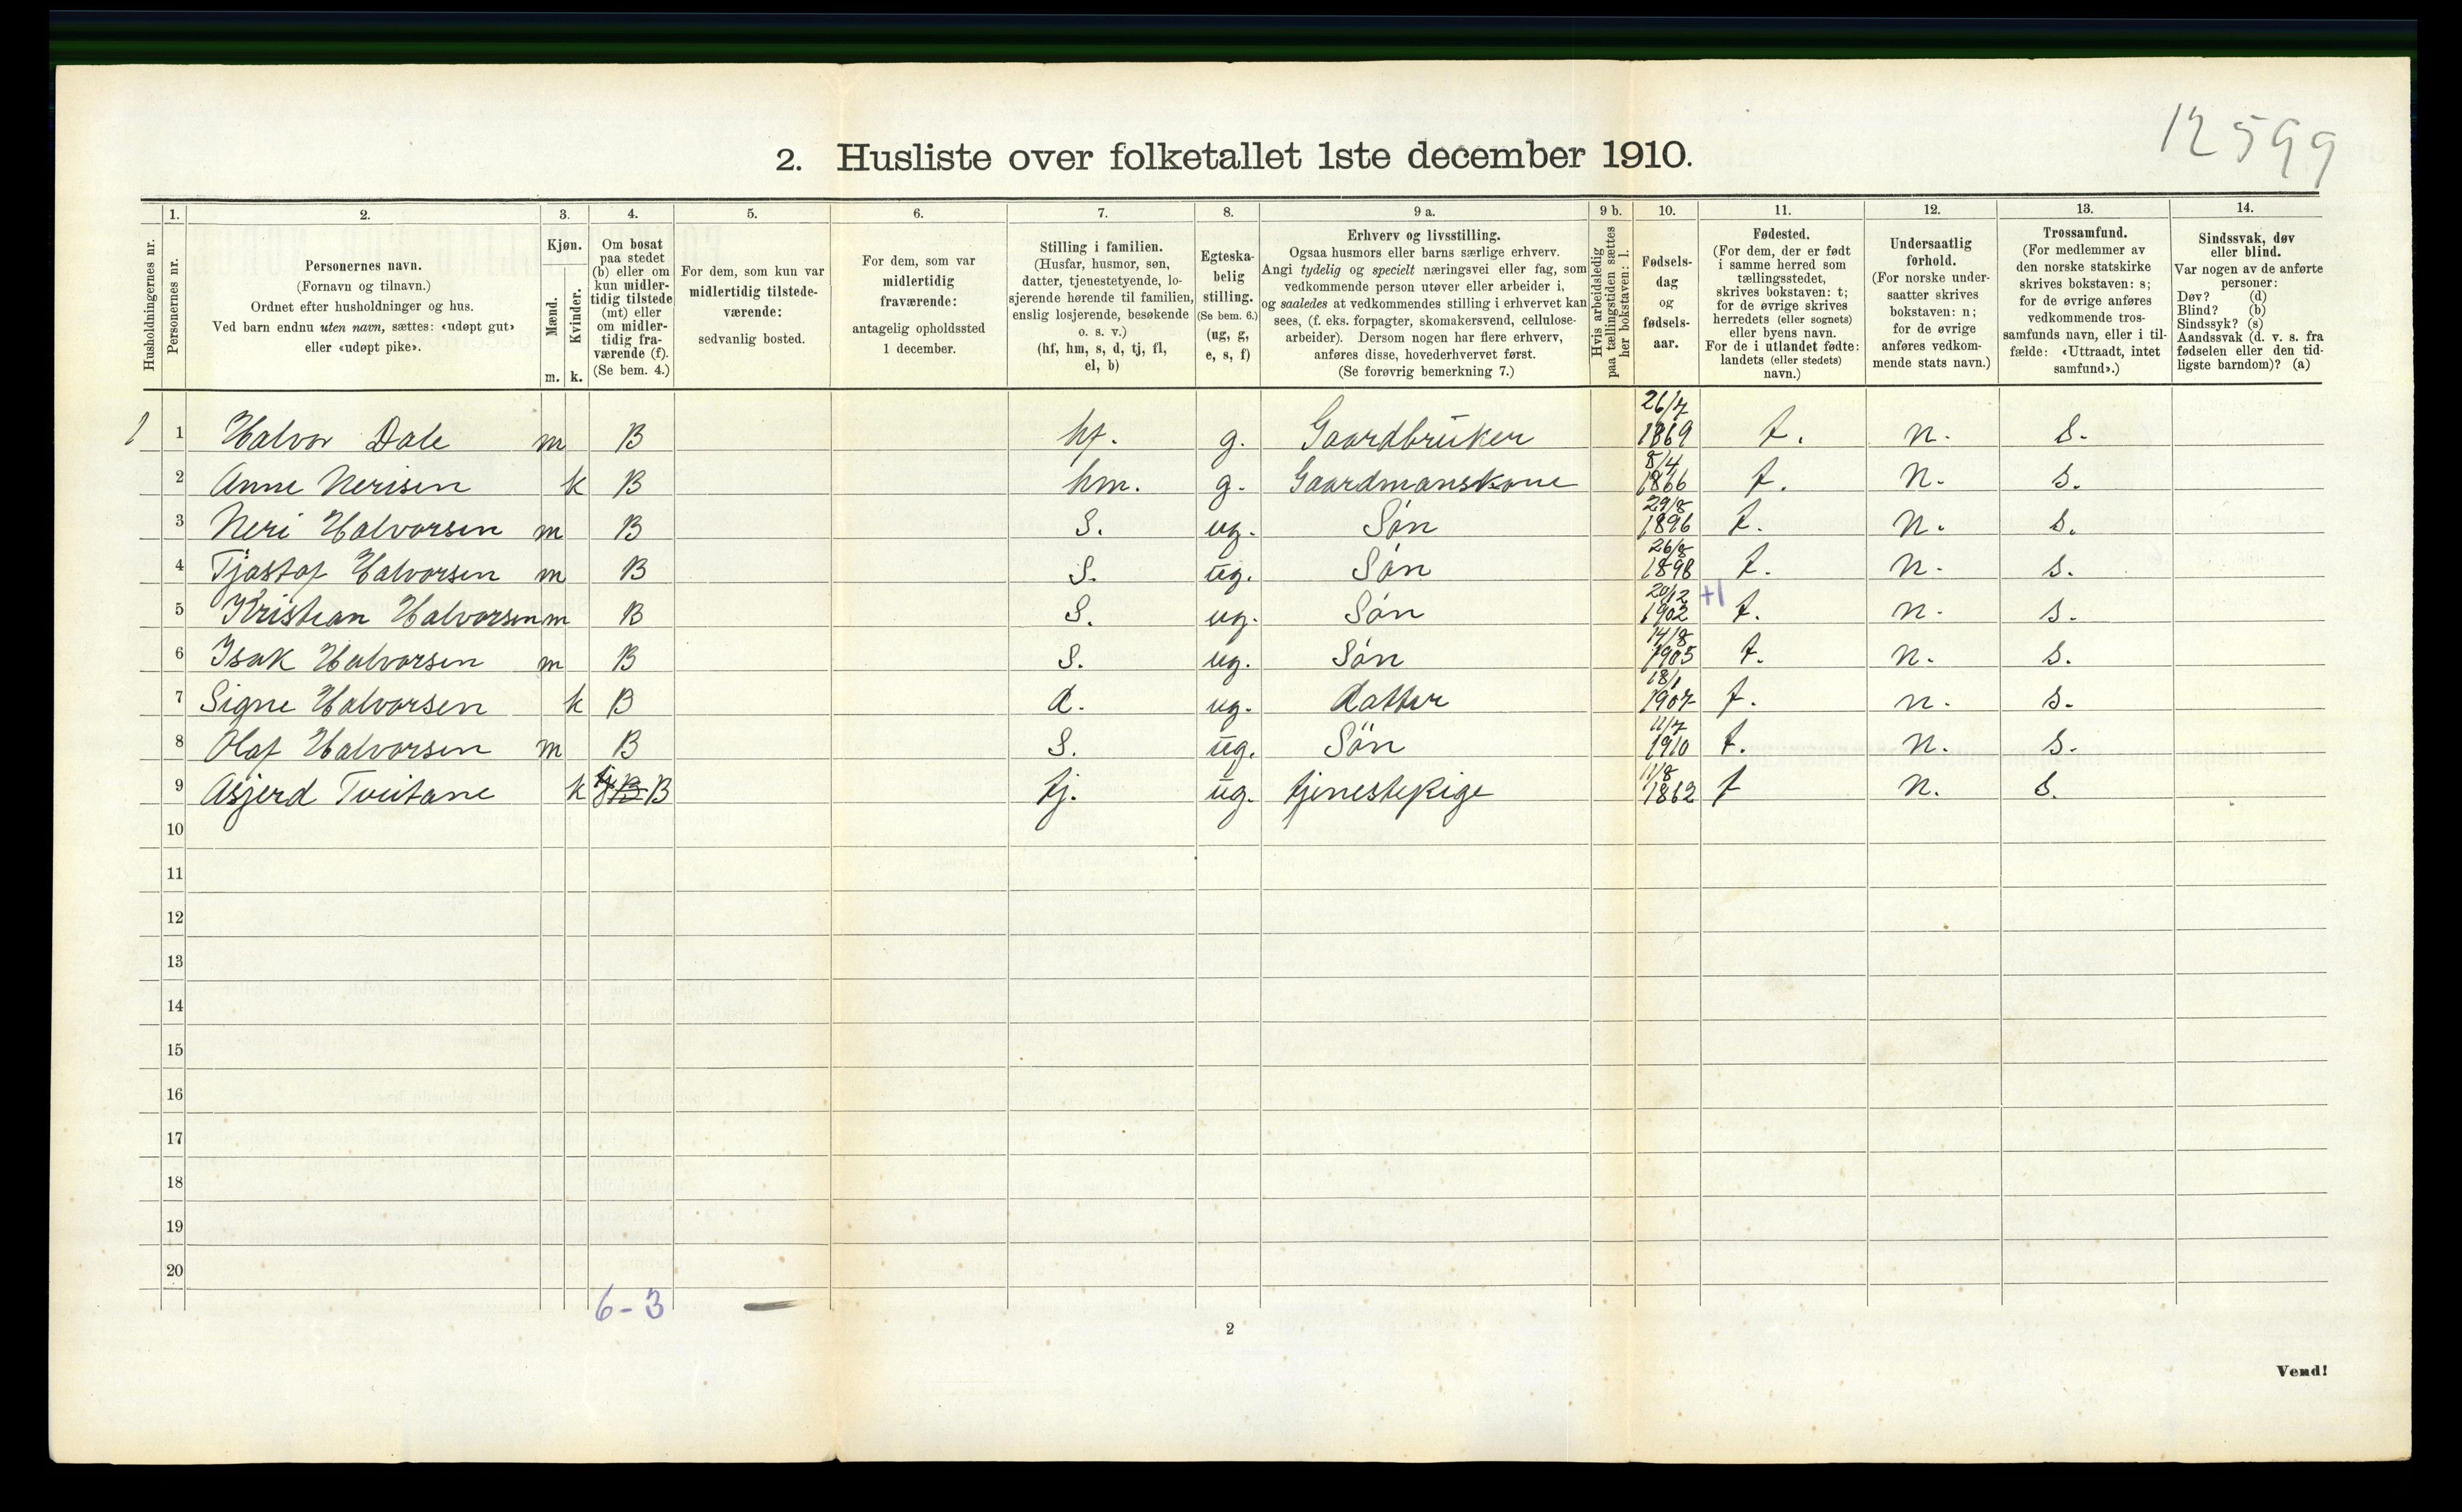 12599
2. Husliste over folketallet 1ste december 1910.
Husholdningernes nr.
1.
Personernes nr.
2.
Personernes navn.
(Fornavn og tilnavn.)
Ordnet efter husholdninger og hus.
Ved barn endnu uten navn, sættes: «udøpt gut»
eller «udøpt pike».
3.
Kjøn.
Mænd.
Kvinder.
m. k.
4.
Om bosat
paa stedet
(b) eller om
kun midler-
tidig tilstede
(mt) eller
om midler-
tidig fra-
værende (f).
(Se bem. 4.)
5.
For dem, som kun var
midlertidig tilstede-
værende:
sedvanlig bosted.
6.
For dem, som var
midlertidig
fraværende:
antagelig opholdssted
1 december.
7.
Stilling i familien.
(Husfar, husmor, søn,
datter, tjenestetyende, lo-
sjerende hørende til familien,
enslig losjerende, besøkende
o. s. v.)
(hf, hm, s, d, tj, fl,
el, b)
8.
Egteska-
belig
stilling.
(Se bem. 6.)
(ug, g,
e, s, f)
9 a.
Erhverv og livsstilling.
Ogsaa husmors eller barns særlige erhverv.
Angi tydelig og specielt næringsvei eller fag, som
vedkommende person utøver eller arbeider i,
og saaledes at vedkommendes stilling i erhvervet kan
sees, (f. eks. forpagter, skomakersvend, cellulose-
arbeider). Dersom nogen har flere erhverv,
anføres disse, hovederhvervet først.
(Se forøvrig bemerkning 7.)
9 b.
Hvis arbeidsledig
paa tællingstiden sættes
her bokstaven: l.
10.
Fødsels-
dag
og
fødsels-
aar.
11.
Fødested.
(For dem, der er født
i samme herred som
tællingsstedet,
skrives bokstaven: t;
for de øvrige skrives
herredets (eller sognets)
eller byens navn.
For de i utlandet fødte:
landets (eller stedets)
navn.)
12.
Undersaatlig
forhold.
(For norske under-
saatter skrives
bokstaven: n;
for de øvrige
anføres vedkom-
mende stats navn.)
13.
Trossamfund.
(For medlemmer av
den norske statskirke
skrives bokstaven: s;
for de øvrige anføres
vedkommende tros-
samfunds navn, eller i til-
fælde: «Uttraadt, intet
samfund».)
14.
Sindssvak, døv
eller blind.
Var nogen av de anførte
personer:
Døv? (d)
Blind? (b)
Sindssyk? (s)
Aandssvak (d. v. s. fra
fødselen eller den tid-
ligste barndom)? (a)
1 1 Halvor Dale m B hf. g. Gaardbruker 26/7 1869 t. n. s.
2 Anne Nerisen k B hm. g. Gaardmanskone 8/4 1866 t. n. s.
3 Neri Halvorsen m B S. ug. Søn 29/8 1896 t. n. s.
4 Tjøstof Halvorsen m B S. ug. Søn 26/8 1898 t. n. s.
5 Kristian Halvorsen m B S. ug. Søn 20/12 1902 +1 t. n. s.
6 Isak Halvorsen m B S. ug. Søn 14/8 1905 t. n. s.
7 Signe Halvorsen k B d. ug. datter 18/1 1907 t. n. s.
8 Olaf Halvorsen m B S. ug. Søn 11/7 1910 t. n. s.
9 Asjerd Tveitane k tj B B tj. ug. tjenestepige 11/8 1862 t n. s.
10
11
12
13
14
15
16
17
18
19
20
6-3
2
Vend!